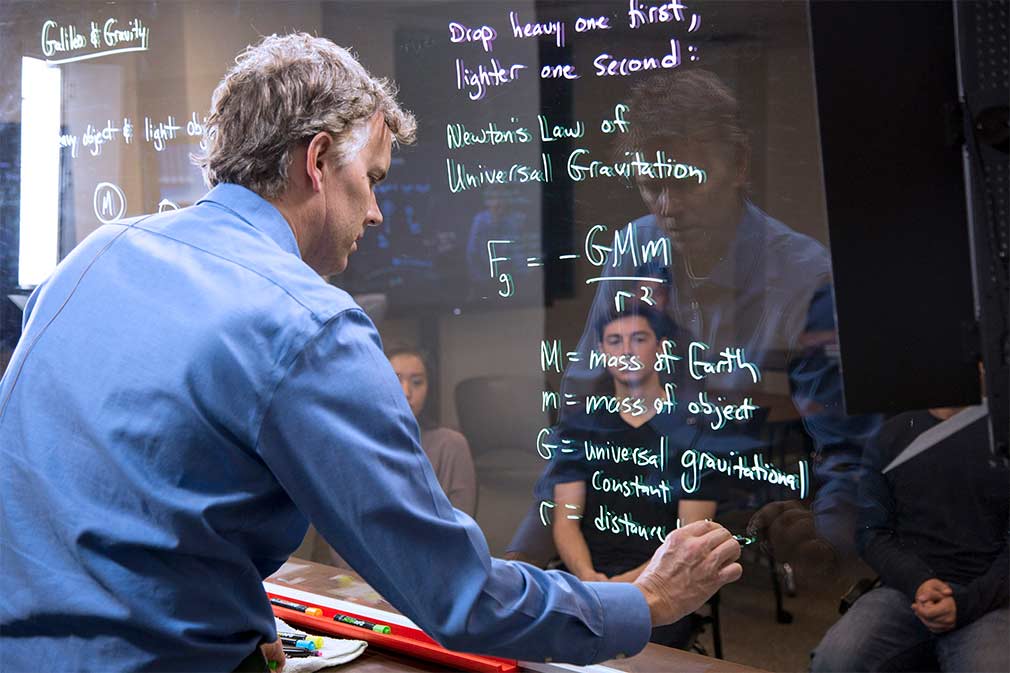 Galileo & Gravity
heavy object & light obj
M
Drop heavy one first,
lighter one second:
Newton's Law of
Universal Gravitation
Fg = - GMm
r²
M = mass of Earth
m = mass of object
G = universal gravitational
Constant
r = distance